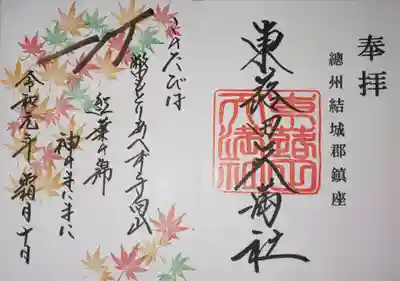 奉拝
總州結城郡鎮座
東蕗田天満社
東蕗田天満社
このたびは
幣もとりあへず手向山
紅葉の錦
神のまにまに
令和元年 霜月十日